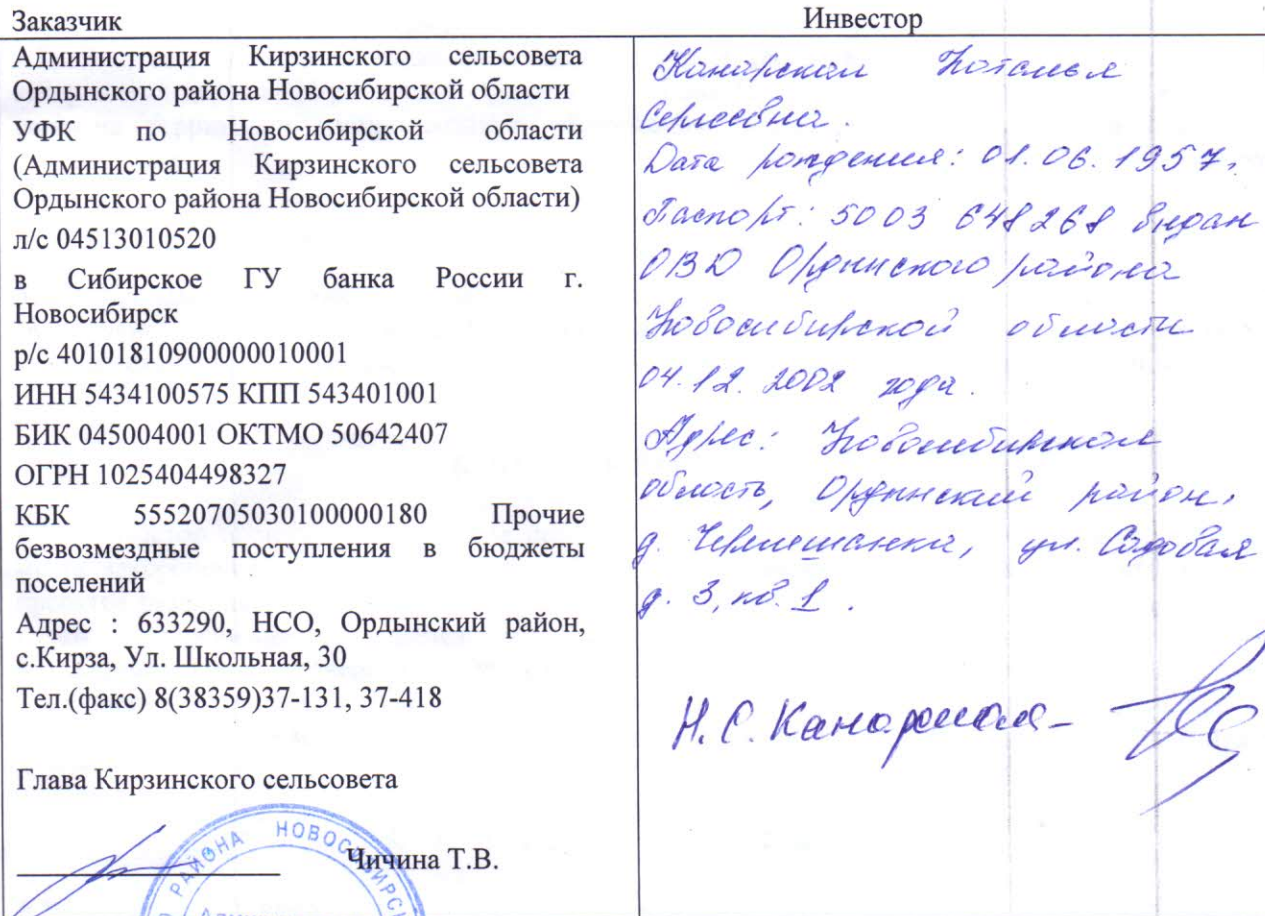 Заказчик
Инвестор
Администрация Кирзинского сельсовета
Ордынского района Новосибирской области
УФК по Новосибирской области
(Администрация Кирзинского сельсовета
Ордынского района Новосибирской области)
л/с 04513010520
в Сибирское ГУ банка России г.
Новосибирск
р/с 40101810900000010001
ИНН 5434100575 КПП 543401001
БИК 045004001 ОКТМО 50642407
ОГРН 1025404498327
КБК 55520705030100000180 Прочие
безвозмездные поступления в бюджеты
поселений
Адрес : 633290, НСО, Ордынский район,
с.Кирза, Ул. Школьная, 30
Тел.(факс) 8(38359)37-131, 37-418
Глава Кирзинского сельсовета
Чичина Т.В.
РАЙОНА НОВОСИБИРСК
Канарская Наталья
Сергеевна.
Дата рождения: 01.06.1957.
Паспорт: 5003 648268 выдан
ОВД Ордынского района
Новосибирской области
04.12.2002 года.
Адрес: Новосибирская
область, Ордынский район,
д. Черемшанка, ул. Садовая
д. 3, кв. 1.
Н.С. Канарская